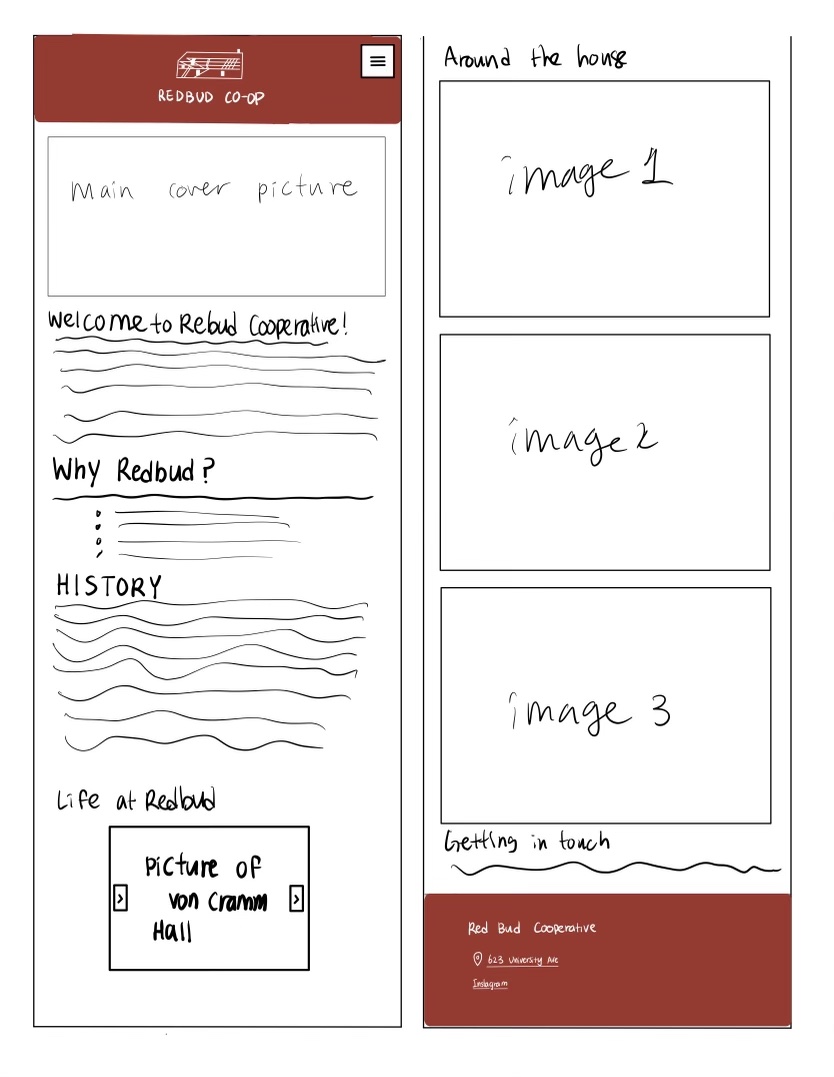 REDBUD CO-OP
Main cover picture
Welcome to Rebud Cooperative!
Why Redbud?
HISTORY
Life at Redbud
Picture of
von Cramm
Hall
Around the house
image 1
image 2
image 3
Getting in touch
Red Bud Cooperative
623 University Ave
Instagram